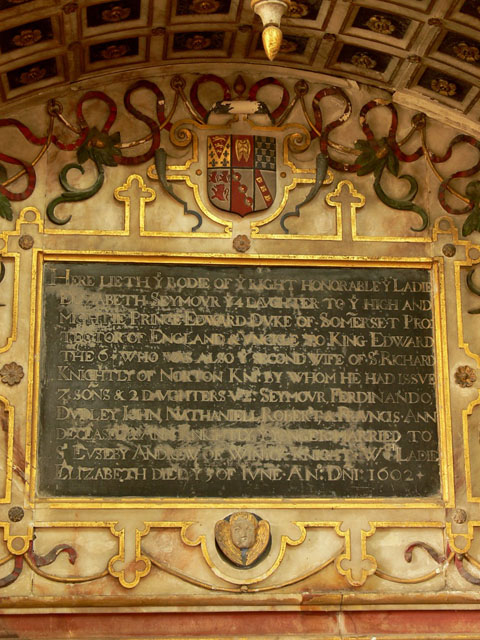 HERE LIETH Yᵉ BODIE OF Yᵉ RIGHT HONORABLE Yᵉ LADIE
ELIZABETH SEYMOVR Yᵉ 4 DAVGHTER TO Yᵉ HIGH AND
PRINCE EDWARD DVKE OF SOMERSET PRO
TECTOR OF ENGLAND & VNCKLE TO KING EDWARD
THE 6ᵗ WHO WAS ALSO Yᵉ SECOND WIFE OF Sʳ RICHARD
KNIGHTLY OF NORTON KNᵗ BY WHOM HE HAD ISSVE
7 SONS & 2 DAVGHTERS SEYMOVR FERDINANDO,
DVDLEY IOHN NATHANIELL ROBERT & FRAVNCIS ANN
MARRIED TO
Sʳ EVSEBY ANDREW OF KNIGHT Wᶜʰ LADIE
ELIZABETH DIED Yᵉ 3 OF IVNE AN. DNI 1602